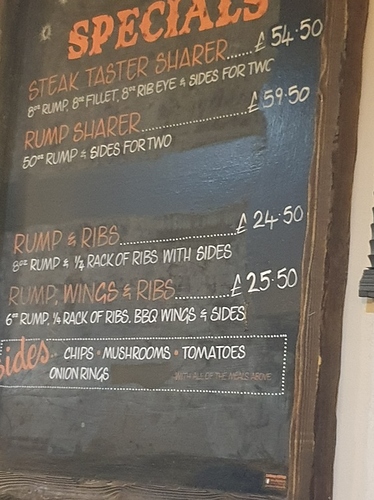 SPECIALS
STEAK TASTER SHARER......£54.50
8oz RUMP, 8oz FILLET, 8oz RIB EYE & SIDES FOR TWO
RUMP SHARER.....................£59.50
50oz RUMP & SIDES FOR TWO
RUMP & RIBS.....................£24.50
8oz RUMP & ¼ RACK OF RIBS WITH SIDES
RUMP, WINGS & RIBS..........£25.50
6oz RUMP, ¼ RACK OF RIBS, BBQ WINGS & SIDES
Sides.. CHIPS • MUSHROOMS • TOMATOES
ONION RINGS WITH ALL OF THE MEALS ABOVE